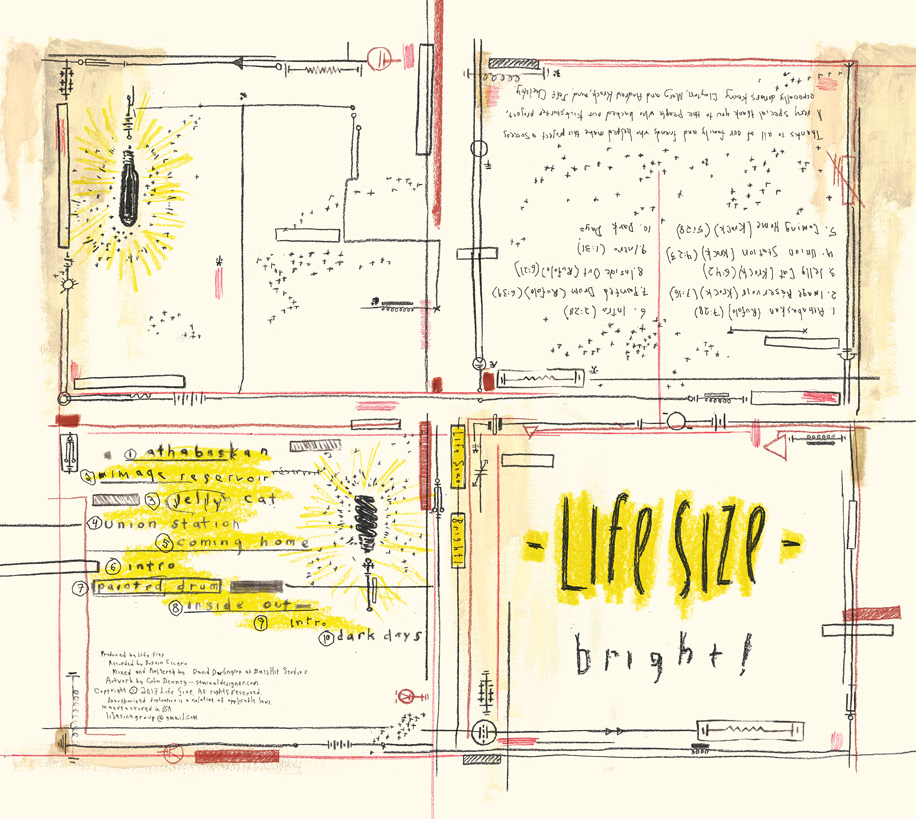 1. Athabaskan (Rufolo) (7:28)
2. Image Reservoir (Krock) (7:16)
3. Jelly Cat (Krock) (6:42)
4. Union Station (Krock) (4:23)
5. Coming Home (Krock) (5:28)
6. Intro (2:28)
7. Painted Drum (Rufolo) (6:39)
8. Inside Out (Rufolo) (6:21)
9. Intro (1:31)
10. Dark Days
Thanks to all of our family and friends who helped make this project a success
A very special thank you to the people who backed our Kickstarter project,
especially donors Kenny Clayton, Mary and Andrew Krock, and Jeff Chelsky.
1 athabaskan
2 image reservoir
3 Jelly cat
4 union station
5 coming home
6 intro
7 painted drum
8 inside out
9 intro
10 dark days
Produced by Life Size
Recorded by Cicero
Mixed and Mastered by David Darlington at BassHit Studios
Artwork by Colin Denney - seminaldesigner.com
Copyright © 2013 Life Size. All rights reserved.
Unauthorized duplication is a violation of applicable laws.
Manufactured in USA
lifesizegroup@gmail.com
Life Size
Bright!
- LIfe SIZe -
bright!